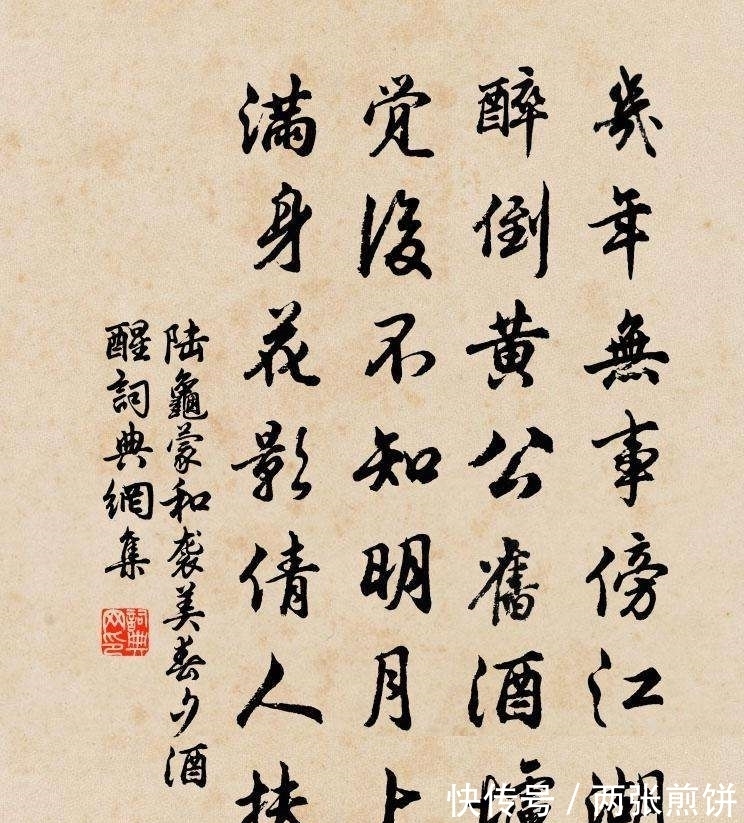 幾年無事傍江湖
醉倒黄公舊酒
觉後不知明月上
满身花影倩人扶
陆龜蒙和袭美春夕酒
醒詞典網集
詞典
快传号 / 两张煎饼